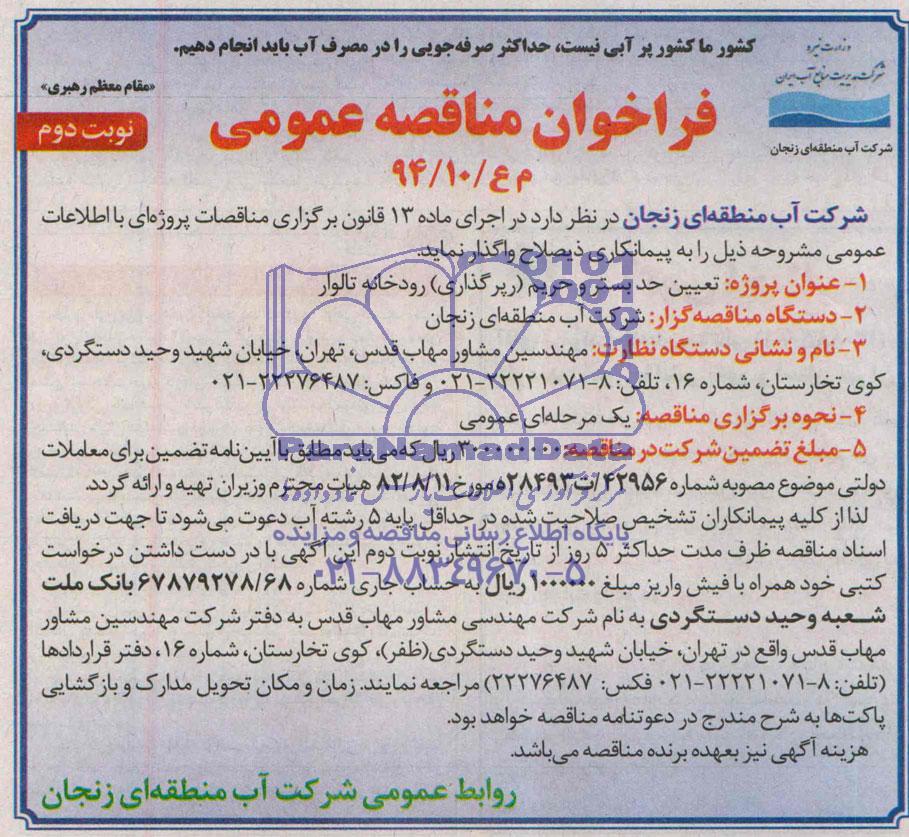 کشور ما کشور پر آبی نیست، حداکثر صرفه‌جویی را در مصرف آب باید انجام دهیم.
«مقام معظم رهبری»
وزارت نیرو
شرکت مدیریت منابع آب ایران
شرکت آب منطقه‌ای زنجان
فراخوان مناقصه عمومی
نوبت دوم
م ع/۹۴/۱۰
شرکت آب منطقه‌ای زنجان در نظر دارد در اجرای ماده ۱۳ قانون برگزاری مناقصات پروژه‌ای با اطلاعات
عمومی مشروحه ذیل را به پیمانکاری ذیصلاح واگذار نماید.
۱- عنوان پروژه: تعیین حد بستر و حریم (رپر گذاری) رودخانه تالوار
۲- دستگاه مناقصه‌گزار: شرکت آب منطقه‌ای زنجان
۳- نام و نشانی دستگاه نظارت: مهندسین مشاور مهاب قدس، تهران، خیابان شهید وحید دستگردی،
کوی تخارستان، شماره ۱۶، تلفن: ۸-۲۲۲۲۱۰۷۱-۰۲۱ و فاکس: ۲۲۲۷۶۴۸۷-۰۲۱
۴- نحوه برگزاری مناقصه: یک مرحله‌ای عمومی
۵- مبلغ تضمین شرکت در مناقصه: ریال که می‌باید مطابق با آیین‌نامه تضمین برای معاملات
دولتی موضوع مصوبه شماره ۴۲۹۵۶/ت۲۸۴۹۳ه مورخ ۸۲/۸/۱۱ هیات محترم وزیران تهیه و ارائه گردد.
لذا از کلیه پیمانکاران تشخیص صلاحیت شده در حداقل پایه ۵ رشته آب دعوت می‌شود تا جهت دریافت
اسناد مناقصه ظرف مدت حداکثر ۵ روز از تاریخ انتشار نوبت دوم این آگهی با در دست داشتن درخواست
کتبی خود همراه با فیش واریز مبلغ ۱۰۰۰۰۰۰ ریال به حساب جاری شماره ۶۷۸۷۹۲۷۸/۶۸ بانک ملت
شعبه وحید دستگردی به نام شرکت مهندسی مشاور مهاب قدس به دفتر شرکت مهندسین مشاور
مهاب قدس واقع در تهران، خیابان شهید وحید دستگردی(ظفر)، کوی تخارستان، شماره ۱۶، دفتر قراردادها
(تلفن: ۸-۲۲۲۲۱۰۷۱-۰۲۱ فکس: ۲۲۲۷۶۴۸۷) مراجعه نمایند. زمان و مکان تحویل مدارک و بازگشایی
پاکت‌ها به شرح مندرج در دعوتنامه مناقصه خواهد بود.
هزینه آگهی نیز بعهده برنده مناقصه می‌باشد.
روابط عمومی شرکت آب منطقه‌ای زنجان
ParsNamadData
پایگاه اطلاع رسانی مناقصه و مزایده
۰۲۱-۸۸۳۴۹۶۷۰-۵